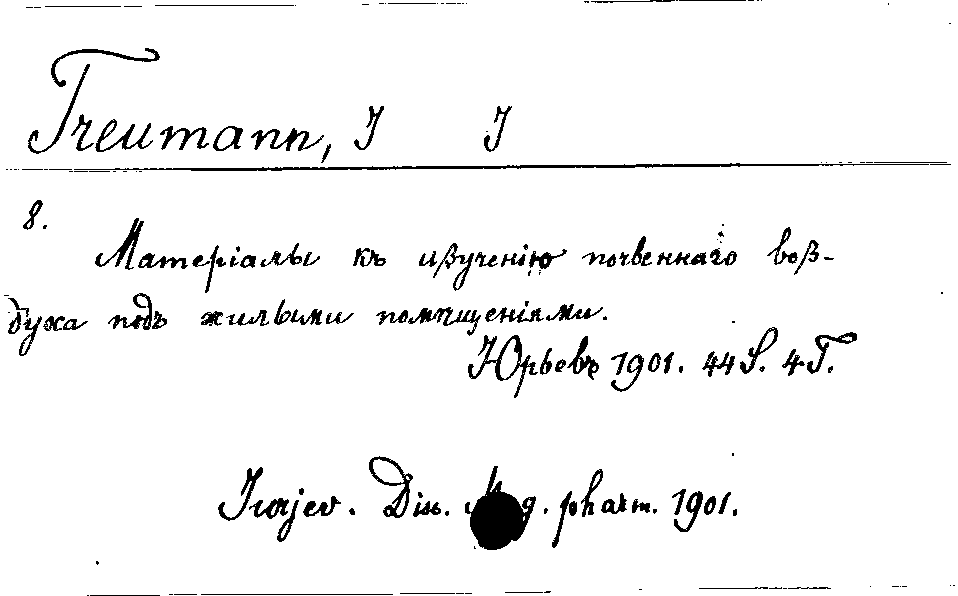 Treumann, J J
8.
Матеріалы къ изученію почвеннаго воз-
духа подъ жилыми помѣщеніями.
Юрьевъ 1901. 44 S. 4 T.
Jurjev. Diss. pharm. 1901.